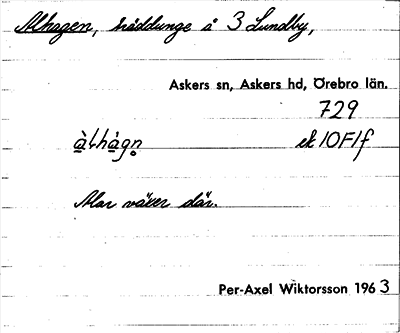 Alhagen, träddunge å 3 Lundby,
Askers sn, Askers hd, Örebro län.
729
àlhágn̥ ek 10F1f
Alar växer där.
Per-Axel Wiktorsson 1963